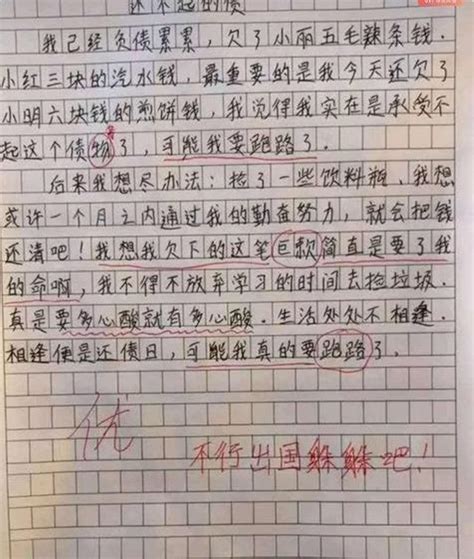 还不起的债
我已经负债累累，欠了小丽五毛辣条钱.
小红三块的汽水钱，最重要的是我今天还欠了
小明六块钱的煎饼钱，我觉得我实在是承受不
起这个债物了，可能我要跑路了.
后来我想尽办法：捡了一些饮料瓶，我想
或许一个月之内通过我的勤奋努力，就会把钱
还清吧！我想我欠下的这笔巨款简直是要了我
的命啊，我不得不放弃学习的时间去捡垃圾.
真是要多心酸就有多心酸. 生活处处不相逢
相逢便是还债日，可能我真的要跑路了.
优
不行出国躲躲吧！